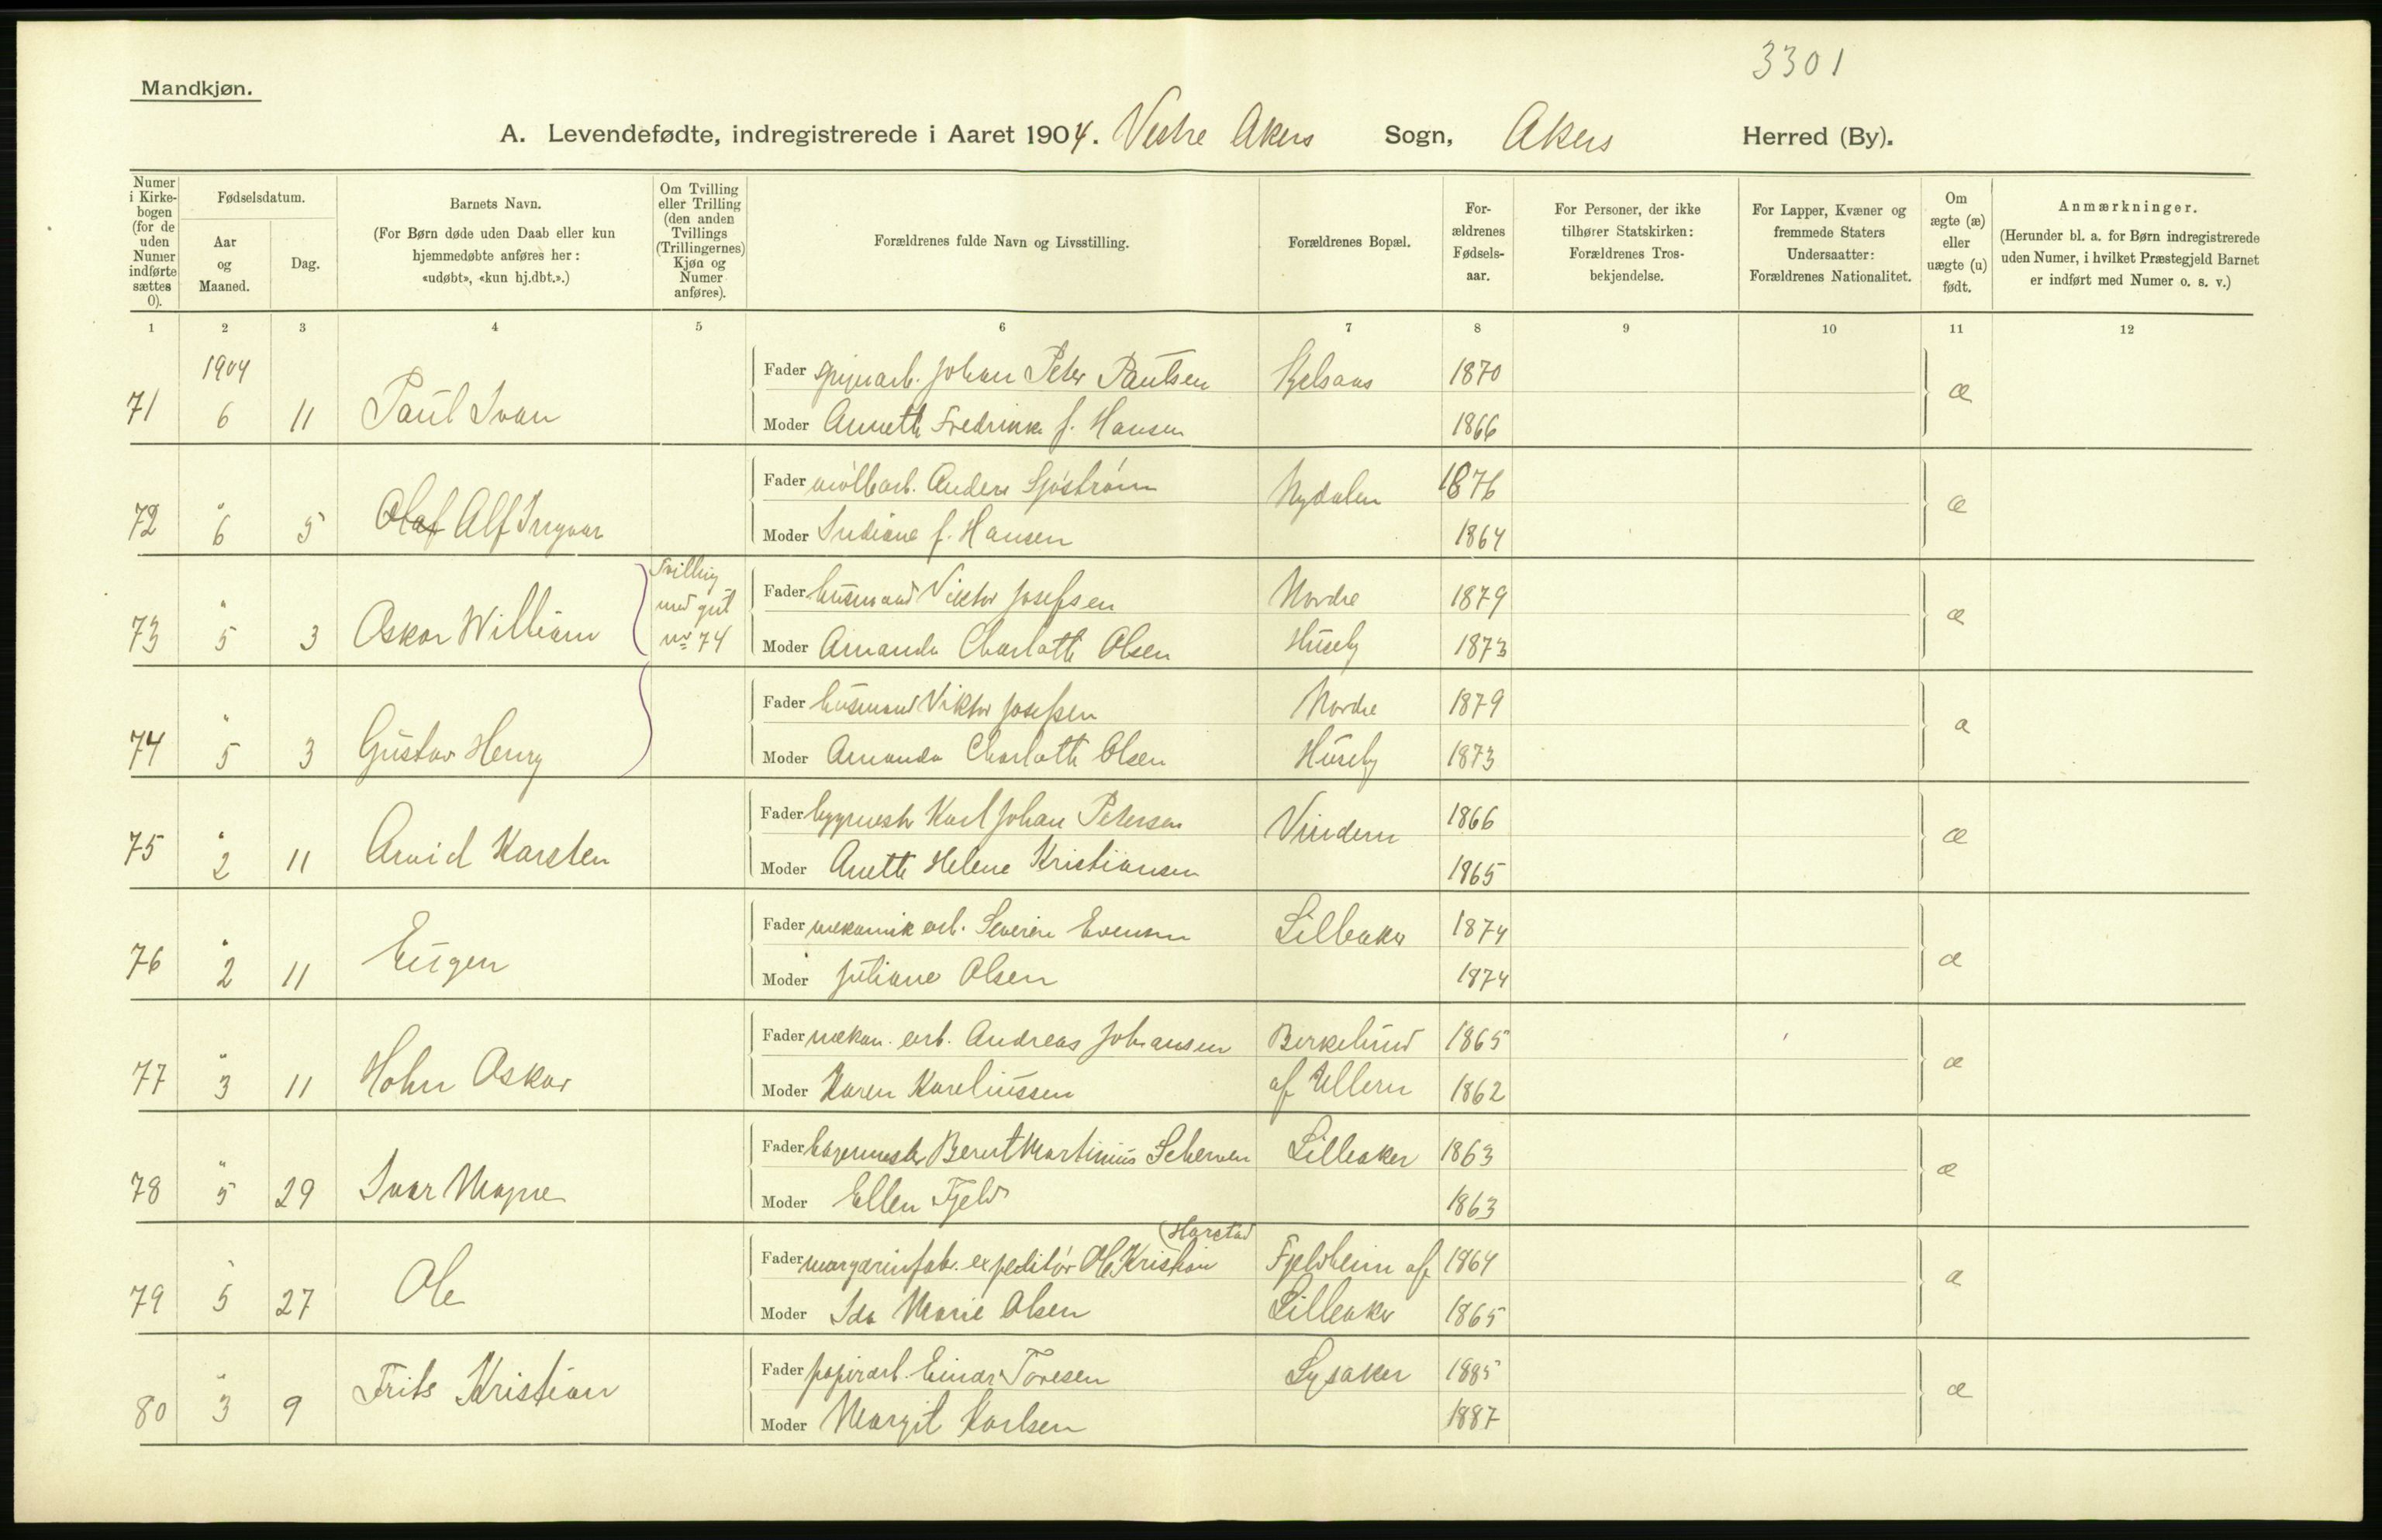 3301
Mandkjøn.
A. Levendefødte, indregistrerede i Aaret 1904. Vestre Akers Sogn, Akers Herred (By).
Numer i Kirkebogen (for de uden Numer indførte sættes 0).
Fødselsdatum.
Aar og Maaned.
Dag.
Barnets Navn.
(For Børn døde uden Daab eller kun hjemmedøbte anføres her: «udøbt», «kun hj.dbt.».)
Om Tvilling eller Trilling (den anden Tvillings (Trillingernes) Kjøn og Numer anføres).
Forældrenes fulde Navn og Livsstilling.
Forældrenes Bopæl.
Forældrenes Fødselsaar.
For Personer, der ikke tilhører Statskirken: Forældrenes Trosbekjendelse.
For Lapper, Kvæner og fremmede Staters Undersaatter: Forældrenes Nationalitet.
Om ægte (æ) eller uægte (u) født.
Anmærkninger.
(Herunder bl. a. for Børn indregistrerede uden Numer, i hvilket Præstegjeld Barnet er indført med Numer o. s. v.)
1 2 3 4 5 6 7 8 9 10 11 12
1904
71 6 11 Paul Ivan
Fader Johan Peter Paulsen Kjelsaas 1870 æ
Moder Annette Fredrikke f. Hansen 1866
72 " 6 5 Olaf Alf Ingvar
Fader Anders Sjöström Nydalen 1876 æ
Moder Indiane f. Hansen 1864
73 " 5 3 Oskar William Tvilling med gut no 74
Fader husmand Viktor Josefsen Nordre 1879 æ
Moder Amanda Charlotte Olsen Huseby 1873
74 " 5 3 Gustav Henry
Fader husmand Viktor Josefsen Nordre 1879 æ
Moder Amanda Charlotte Olsen Huseby 1873
75 " 2 11 Arvid Karsten
Fader bygmestr Karl Johan Petersen Vindern 1866 æ
Moder Anette Helene Kristiansen 1865
76 " 2 11 Eugen
Fader mekanik arb. Severin Evensen Lilleaker 1874 æ
Moder Juliane Olsen 1874
77 " 3 11 John Oskar
Fader mekan. arb. Andreas Johansen Birkelund 1865 æ
Moder Karen Kareliussen af Ullern 1862
78 " 5 29 Ivar Magne
Fader Bernt Martinius Scherven Lilleaker 1863 æ
Moder Ellen Fjeld 1863
79 " 5 27 Ole
(Harstad
Fader margarinfab. expeditør Ole Kristian Fjeldheim af 1864 æ
Moder Ida Marie Olsen Lilleaker 1865
80 " 3 9 Frits Kristian
Fader papirarb. Einar Toresen Lysaker 1885 æ
Moder Margit Karlsen 1887